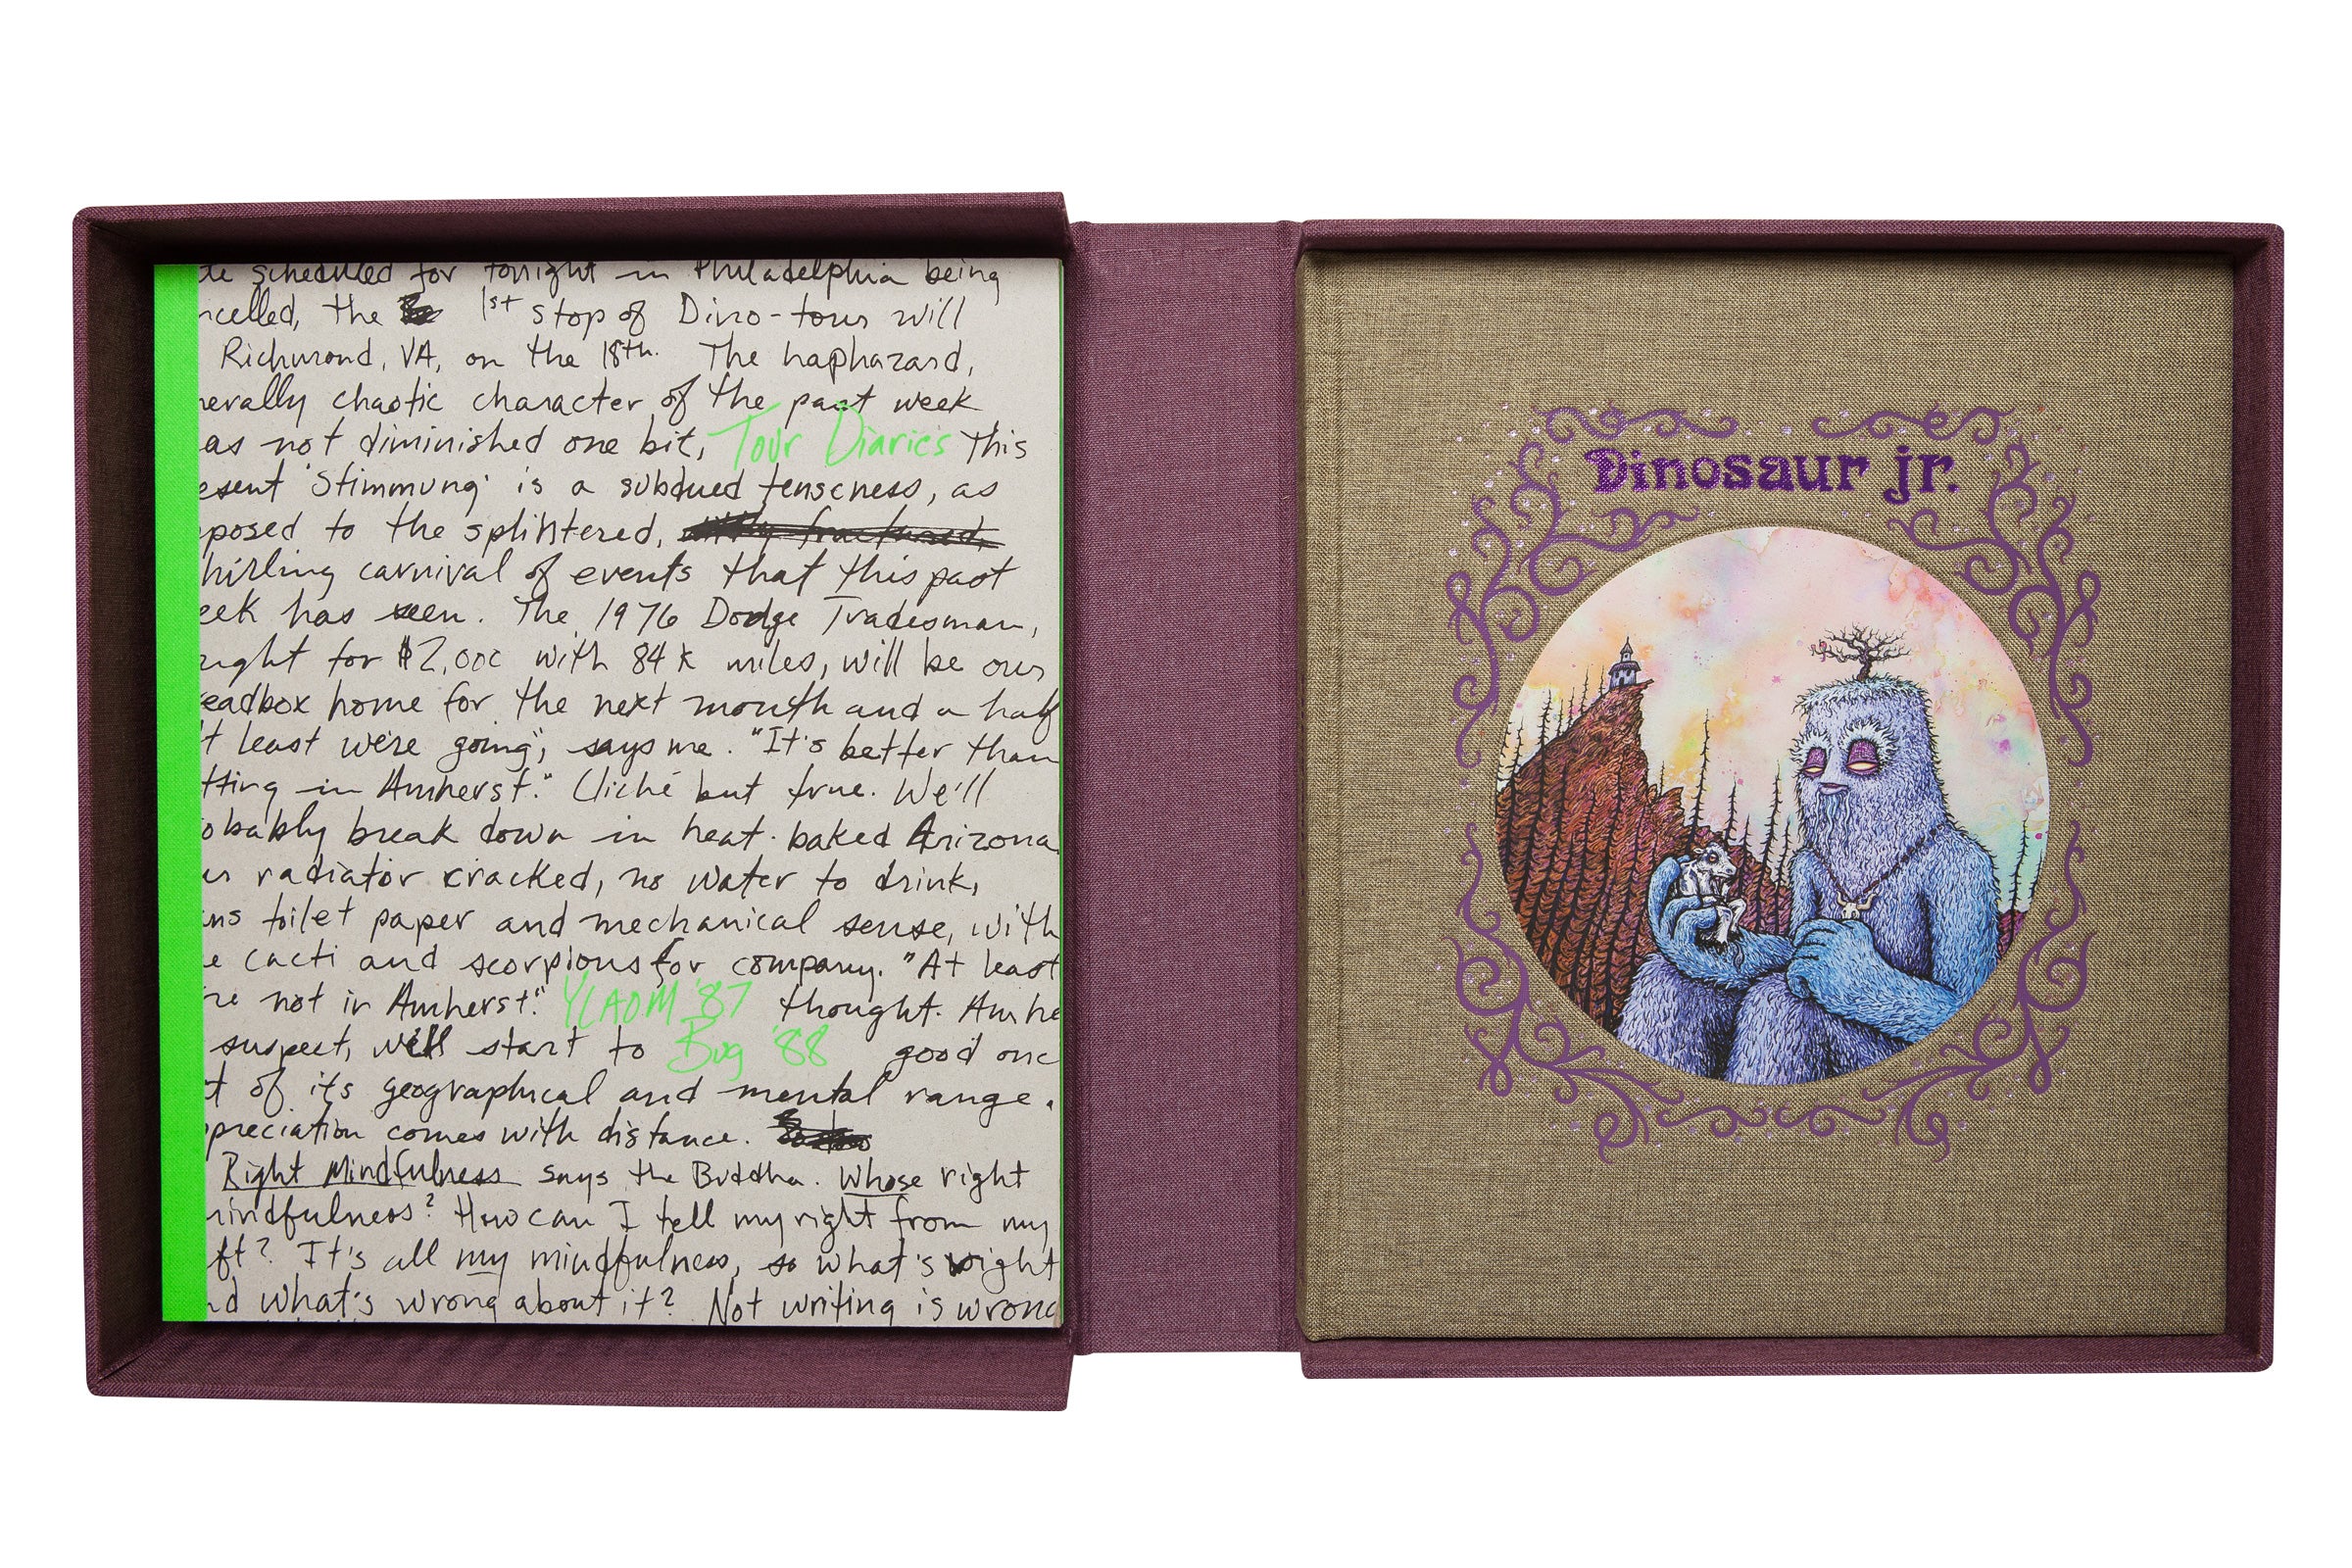 te scheduled for tonight in Philadelphia being
ncelled, the 1st stop of Dino-tour will
Richmond, VA, on the 18th. The haphazard,
nerally chaotic character of the past week
as not diminished one bit, Tour Diaries This
esent 'Stimmung' is a subdued tenseness, as
pposed to the splintered,
hirling carnival of events that this past
eek has seen. The 1976 Dodge Tradesman,
ught for $2,000 with 84k miles, will be our
readbox home for the next month and a half
't least we're going", says me. "It's better than
tting in Amherst." Cliché but true. We'll
obably break down in heat-baked Arizona
ur radiator cracked, no water to drink,
ans toilet paper and mechanical sense, with
e cacti and scorpions for company. "At least
're not in Amherst." YLAOM '87 thought. Amhe
suspect, we'll start to Bug '88 good once
t of its geographical and mental range.
ppreciation comes with distance.
Right Mindfulness says the Buddha. Whose right
mindfulness? How can I tell my right from my
eft? It's all my mindfulness, so what's right
nd what's wrong about it? Not writing is wrong
Dinosaur jr.